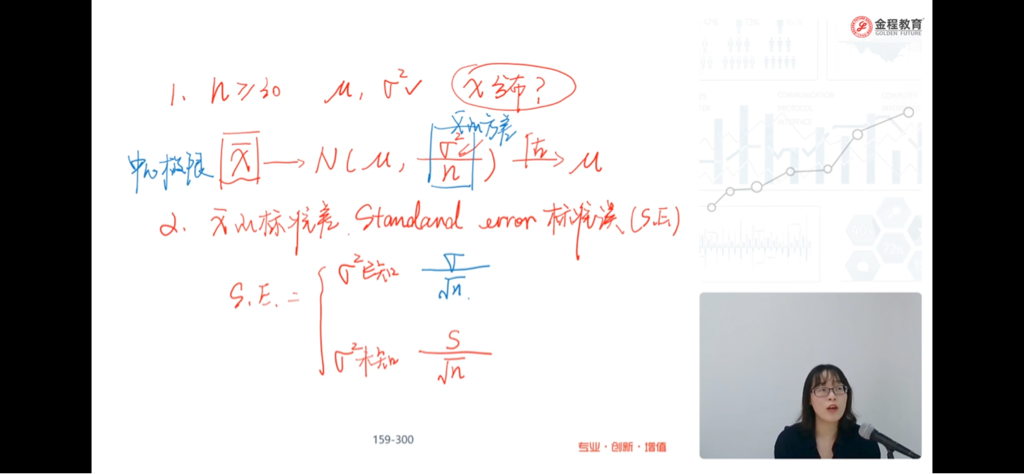 金程教育
GOLDEN FUTURE
1. n≥30 μ, σ²✓ x̄分布?
x̄的方差
中心极限 x̄ → N(μ, σ²/n) 估→ μ
2. x̄的标准差. Standand error 标准误(S.E.)
S.E. = { σ²已知 σ/√n.
σ²未知 S/√n
159-300
专业·创新·增值